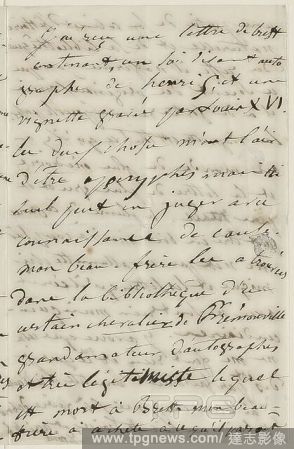 J'ai reçu une lettre de Brest
contenant, un soi disant auto
graphe de henri et un
vignette gravée par Louis XVI
les deux choses m'ont l'air
d'être apocryphes mais
peut en juger avec
connaissance de cause
mon beau frère les a trouvés
dans la bibliothèque d'un
certain chevalier de Frémonville
grand amateur d'autographes
et très légitimiste lequel
est mort à Brest mon beau
frère a acheté
www.tpgnews.com / 達志影像